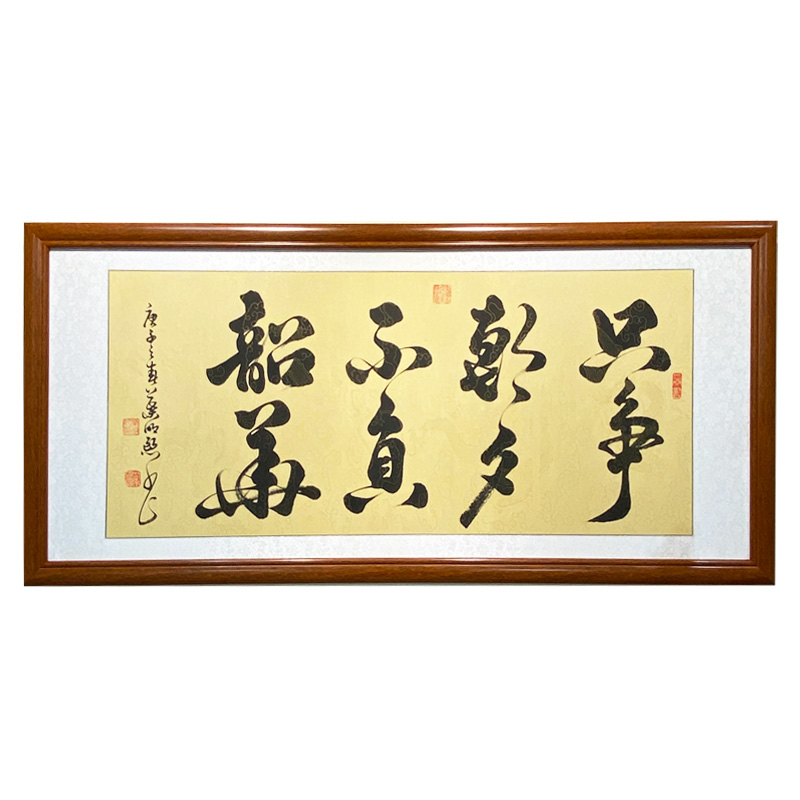 只争
朝夕
不负
韶華
庚子之春